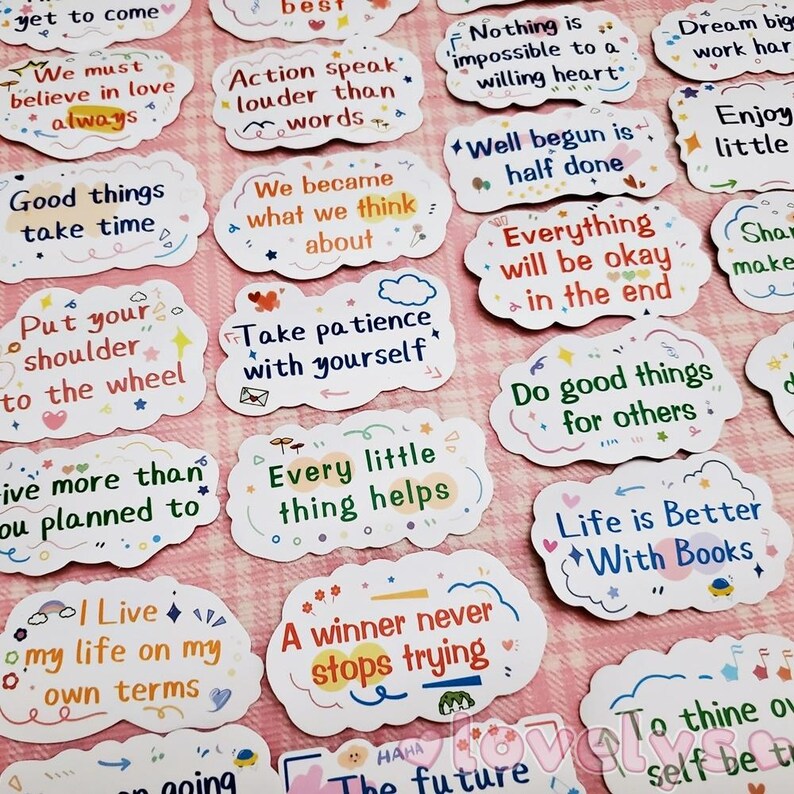 yet to come
best
Nothing is
impossible to a
willing heart
Dream big
work har
We must
believe in love
always
Action speak
louder than
words
Well begun is
half done
Enjoy
little
Good things
take time
We became
what we think
about
Everything
will be okay
in the end
Shar
make
Put your
shoulder
to the wheel
Take patience
with yourself
Do good things
for others
d
ive more than
ou planned to
Every little
thing helps
Life is Better
With Books
I Live
my life on my
own terms
A winner never
stops trying
To thine ow
self be tr
on going
HAHA
The future
lovelys